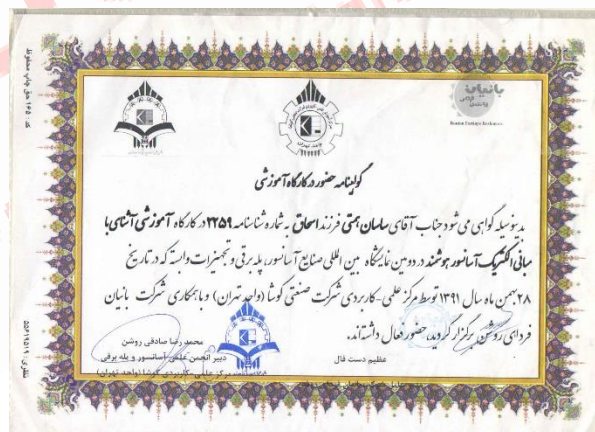 بانیان
فردای روشن
گواهینامه حضور در کارگاه آموزشی
بدینوسیله گواهی می شود جناب آقای ساسان همتی فرزند اسحاق به شماره شناسنامه ۲۲۵۹ در کارگاه آموزشی آشنایی با
مبانی الکتریک آسانسور هوشمند در دومین نمایشگاه بین المللی صنایع آسانسور، پله برقی و تجهیزات وابسته که در تاریخ
۲۸ بهمن ماه سال ۱۳۹۱ توسط مرکز علمی-کاربردی شرکت صنعتی کوشا (واحد تهران) و با همکاری شرکت بانیان
فردای روشن برگزار گردید، حضور فعال داشته اند.
محمد رضا صادقی روشن
دبیر انجمن علمی آسانسور و پله برقی
مرکز علمی-کاربردی کوشا (واحد تهران)
عظیم دست فال
کد: ۱۴۵ حق چاپ محفوظ